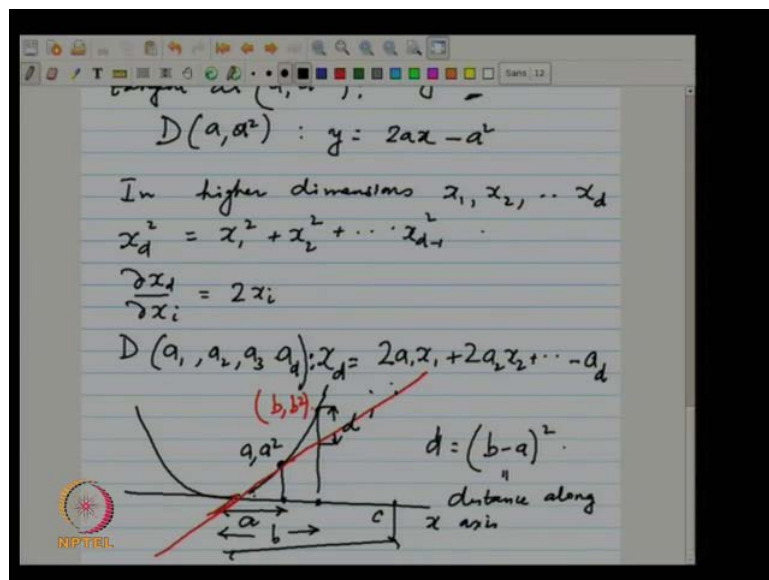 Sans 12
D(a, a²) : y = 2ax - a²
In higher dimensions x₁, x₂, .. x_d
x_d² = x₁² + x₂² + ... x_{d-1}² .
∂x_d/∂x_i = 2x_i
D(a₁, a₂, a₃ a_d): x_d = 2a₁x₁ + 2a₂x₂ + ... - a_d
(b, b²)
d
a, a²
d = (b-a)² .
"
distance along
x axis
a
b
c
NPTEL